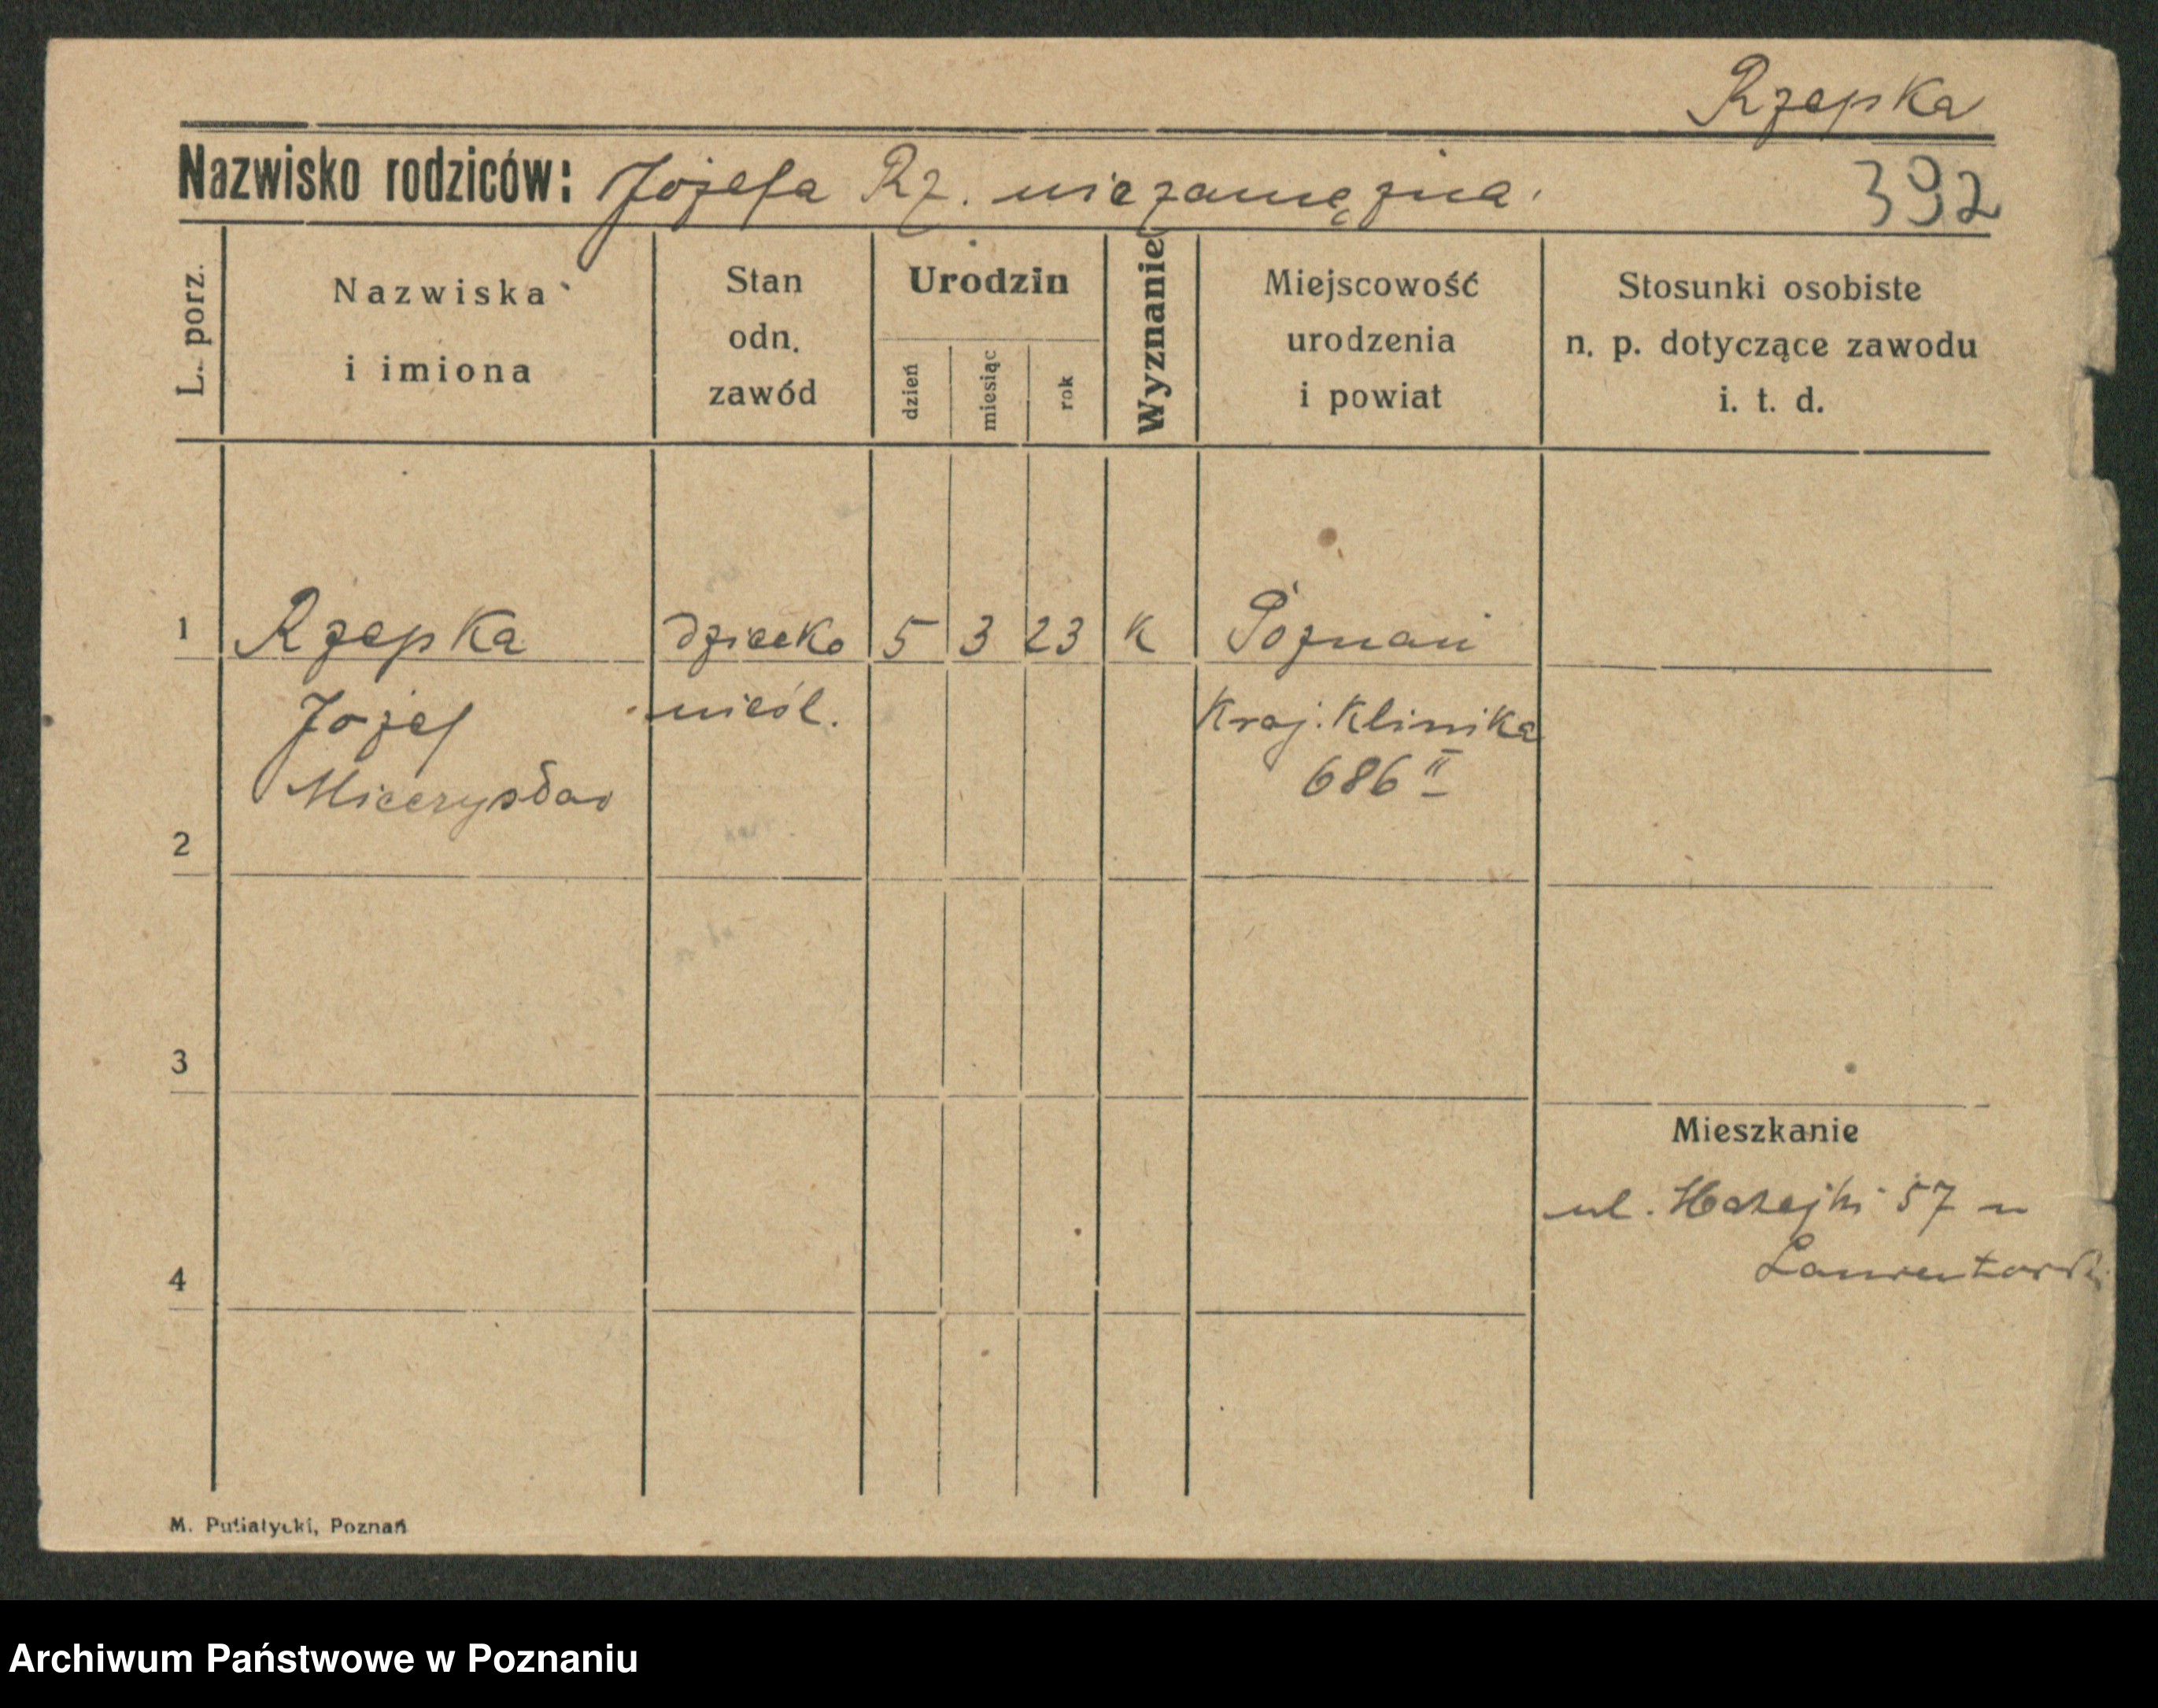 Rzepka
Nazwisko rodziców: Józefa Rz. niezamężna.
392
L. porz.
Nazwiska i imiona
Stan odn. zawód
Urodzin
dzień
miesiąc
rok
Wyznanie
Miejscowość urodzenia i powiat
Stosunki osobiste n. p. dotyczące zawodu i. t. d.
1 Rzepka dziecko 5 3 23 K Poznań
Józef nieśl. Kraj. Klinika
Mieczysław 686 II
2
3
Mieszkanie
ul. Matejki 57 u
4
M. Putiatycki, Poznań
Archiwum Państwowe w Poznaniu